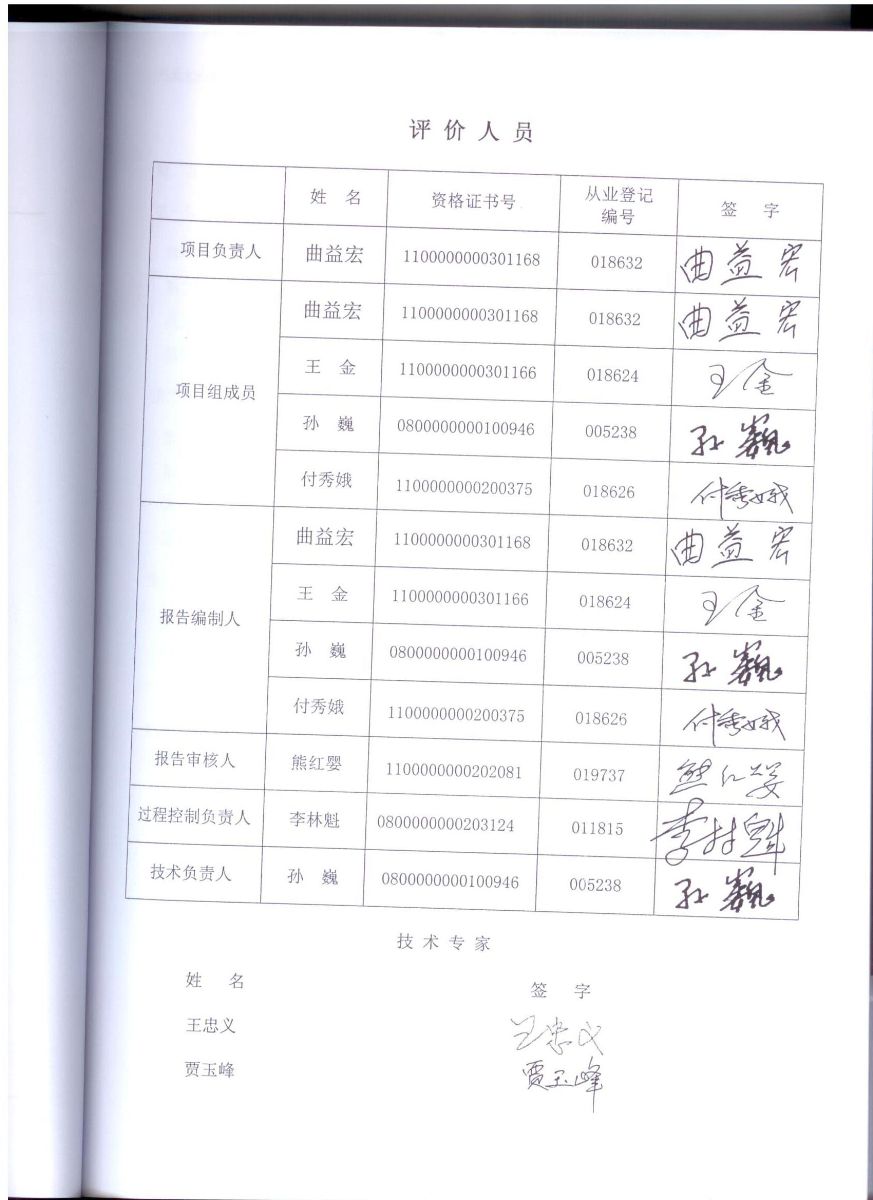 评价人员
姓 名 资格证书号 从业登记编号 签 字
项目负责人 曲益宏 1100000000301168 018632 曲益宏
项目组成员 曲益宏 1100000000301168 018632 曲益宏
王 金 1100000000301166 018624 王金
孙 巍 0800000000100946 005238 孙巍
付秀娥 1100000000200375 018626 付秀娥
报告编制人 曲益宏 1100000000301168 018632 曲益宏
王 金 1100000000301166 018624 王金
孙 巍 0800000000100946 005238 孙巍
付秀娥 1100000000200375 018626 付秀娥
报告审核人 熊红婴 1100000000202081 019737 熊红婴
过程控制负责人 李林魁 0800000000203124 011815 李林魁
技术负责人 孙 巍 0800000000100946 005238 孙巍
技术专家
姓 名 签 字
王忠义 王忠义
贾玉峰 贾玉峰